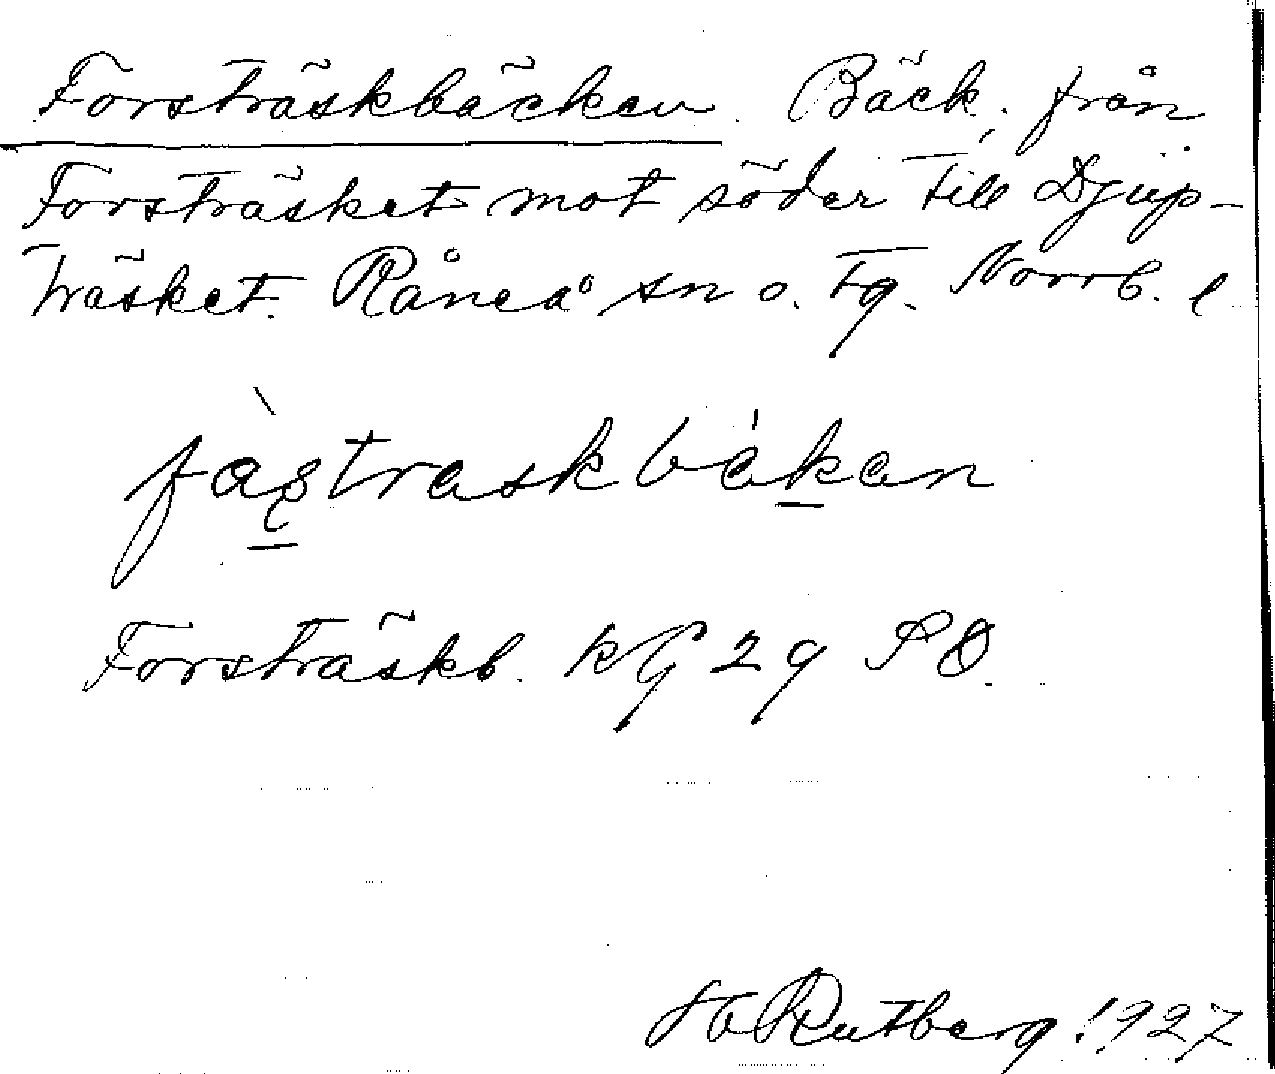 Forsträskbäcken. Bäck, från
Forsträsket mot söder till Djup-
träsket. Råneå sn o. tg. Norrb. l
fàştraskbákan
Forsträskb. kG 29 SO.
H Rutberg 1927